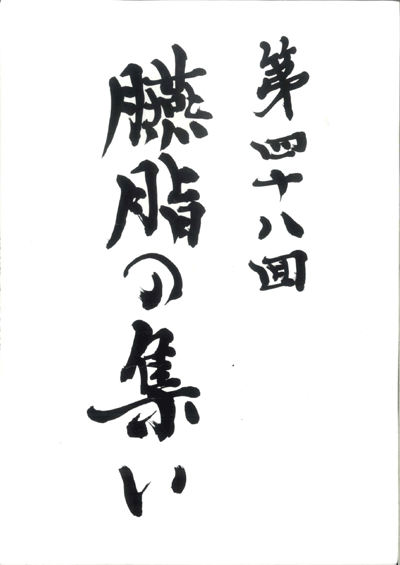 第四十八回
臙脂の集い